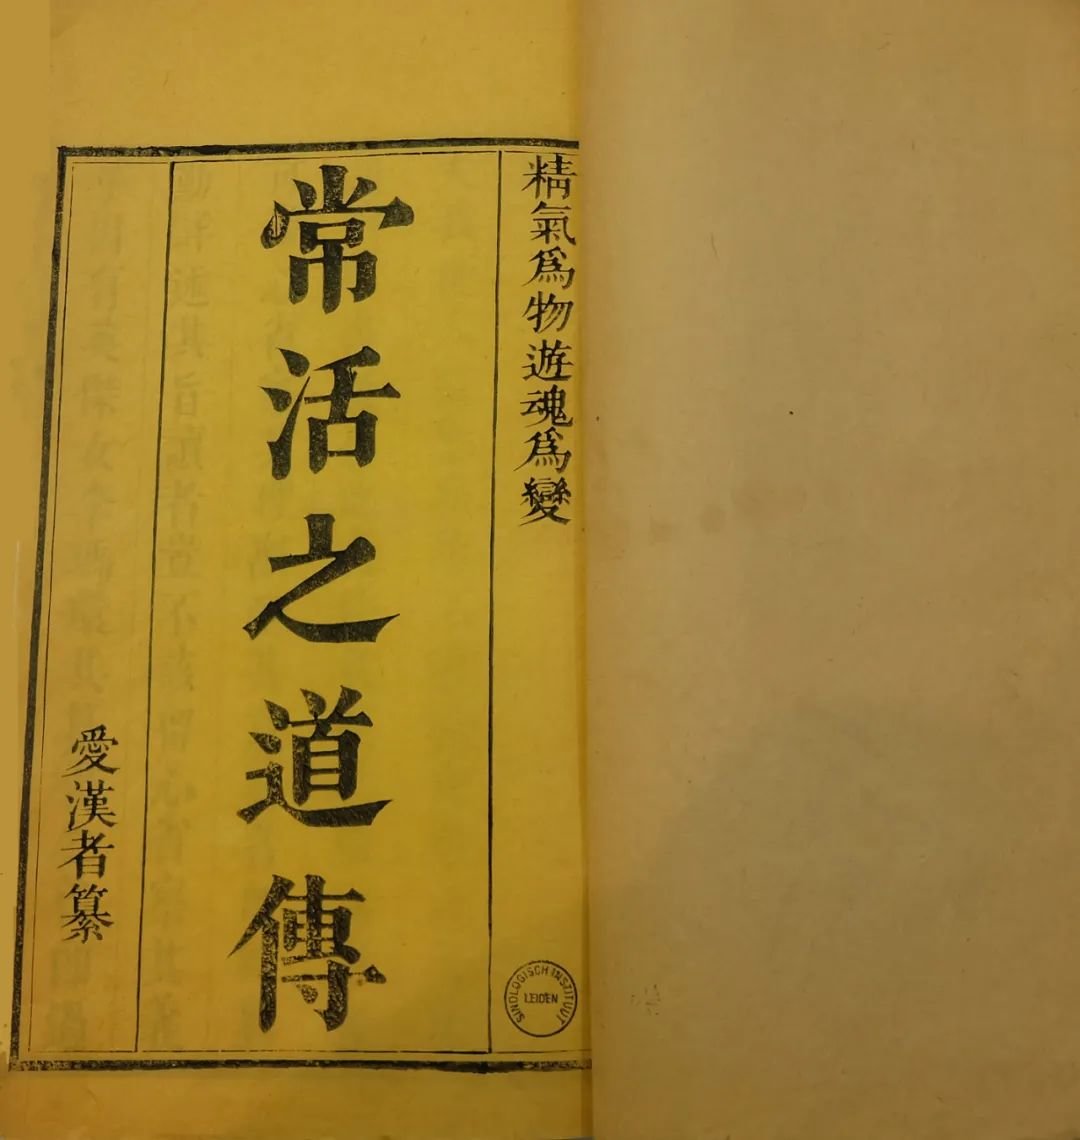 精氣為物遊魂為變
常活之道傳
愛漢者纂
SINOLOGISCH INSTITUUT
LEIDEN